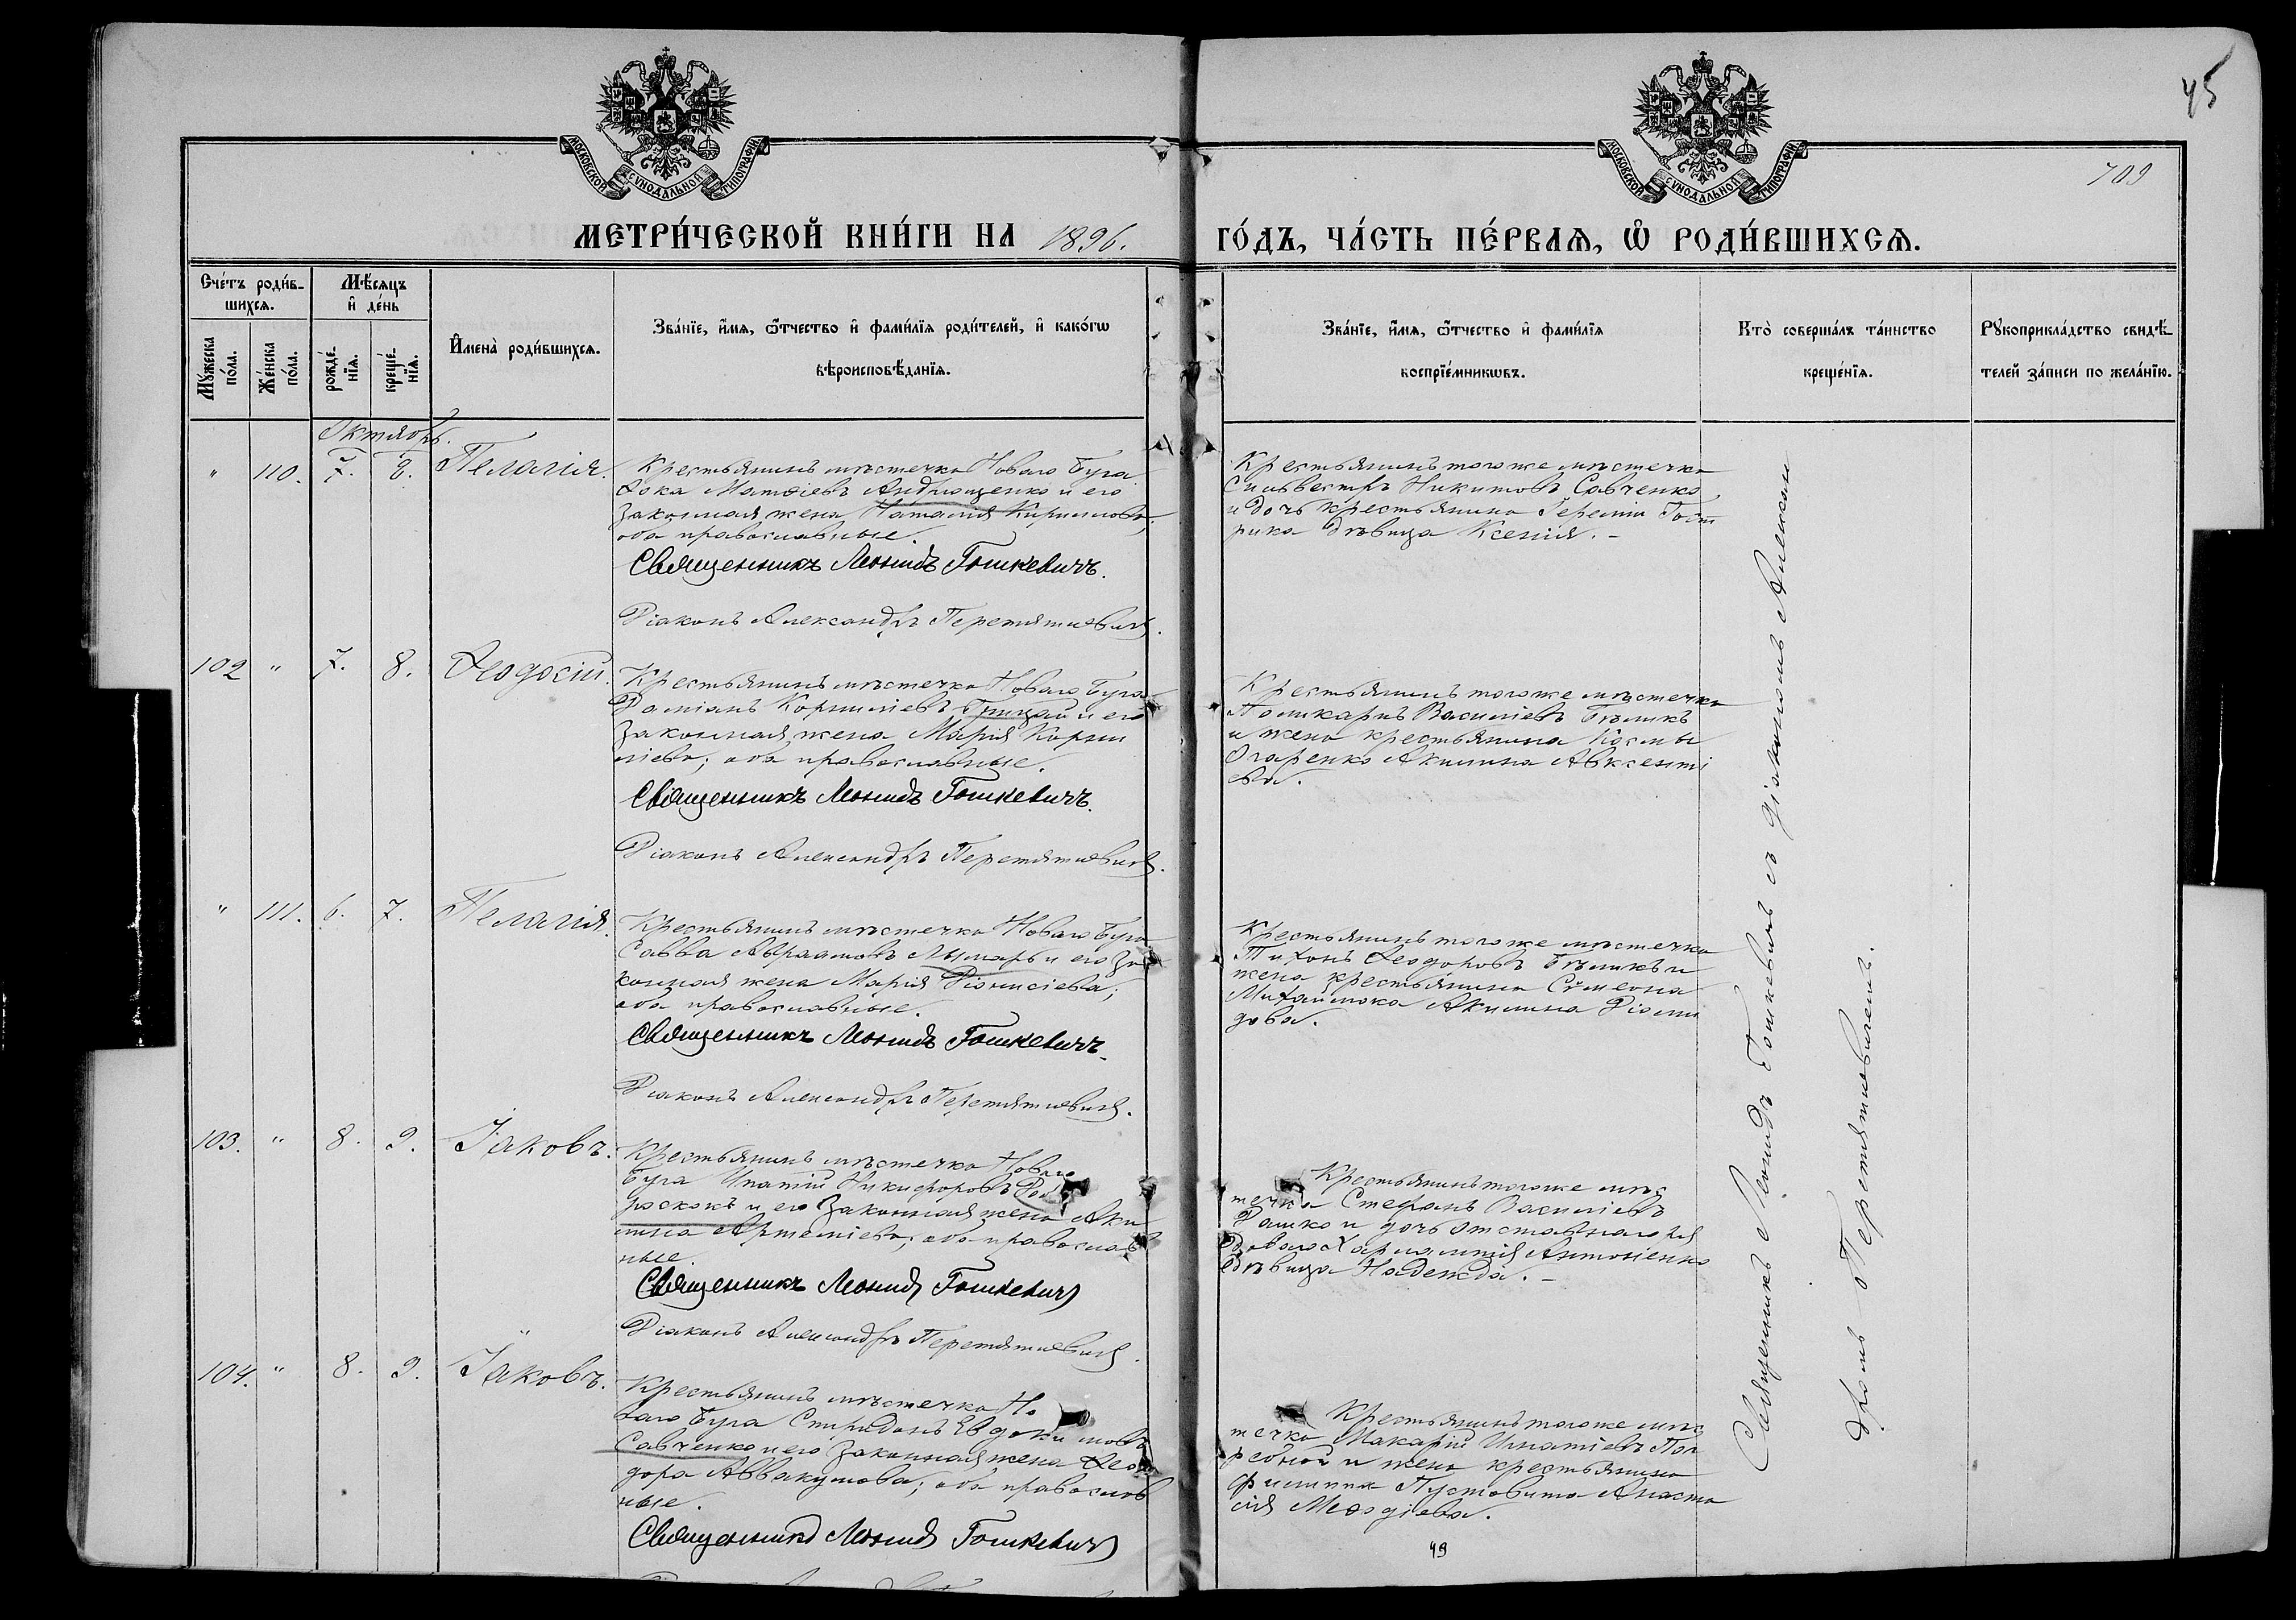 45
МОСКОВСКОЙ СѴНОДАЛЬНОЙ ТИПОГРАФІИ
МОСКОВСКОЙ СѴНОДАЛЬНОЙ ТИПОГРАФІИ
709
МЕТРИ́ЧЕСКОЙ КНИ́ГИ НА 1896.
ГО́ДЪ, ЧА́СТЬ ПЕ́РВАѦ, Ѽ РОДИ́ВШИХСѦ.
Сче́тъ роди́в-
шихсѧ.
Мѣ́сѧцъ
и҆ де́нь
Мꙋ́жеска
по́ла.
Же́нска
по́ла.
рожде́-
нїѧ.
креще́-
нїѧ.
И҆мена̀ роди́вшихсѧ.
Зва́нїе, и҆́мѧ, ѻ҆́тчество и҆ фами́лїѧ роди́телей, и҆ како́гѡ
вѣроисповѣ́данїѧ.
Зва́нїе, и҆́мѧ, ѻ҆́тчество и҆ фами́лїѧ
воспрїе́мникѡвъ.
Кто̀ соверша́лъ та́инство
креще́нїѧ.
Рꙋкоприкла́дство свидѣ́-
телей за́писи по жела́нїю.
Октябрь.
" 110. 7. 8. Пелагія.
Крестьянинъ мѣстечка Новаго Буга
Ѳока Матѳіевъ Андрющенко и его
законная жена Наталія Кириллова,
оба православные.
Священникъ Леонидъ Гошкевичъ.
Діаконъ Александръ Перетятковичъ.
Крестьянинъ того же мѣстечка
Сильвестръ Никитовъ Савченко
и дочь крестьянина Гост
рика дѣвица Ксенія. -
102 " 7. 8. Ѳеодосій.
Крестьянинъ мѣстечка Новаго Буга
Даміанъ Корниліевъ Грицай и его
законная жена Марія Корни
ліева; оба православные.
Священникъ Леонидъ Гошкевичъ.
Діаконъ Александръ Перетятковичъ.
Крестьянинъ того же мѣстечка
Поликарпъ Василіевъ Бѣликъ
и жена крестьянина Космы
Огаренко Акилина Авксенті
ева.
" 111. 6. 7. Пелагія.
Крестьянинъ мѣстечка Новаго Буга
Савва Авраамовъ Лымарь и его за
конная жена Марія Діонисіева;
оба православные.
Священникъ Леонидъ Гошкевичъ.
Діаконъ Александръ Перетятковичъ.
Крестьянинъ того же мѣстечка
Тихонъ Ѳеодоровъ Бѣликъ и
жена крестьянина Сѵмеона
Михайлюка Акилина Діоми
дова.
103. " 8. 9. Іаковъ.
Крестьянинъ мѣстечка Новаго
Буга Ипатій Никифоровъ
и его законная жена Аки
лина Артеміева; оба православ
ные.
Священникъ Леонидъ Гошкевичъ
Діаконъ Александръ Перетятковичъ.
Крестьянинъ того же мѣс
течка Стефанъ Василіевъ
Дашко и дочь отставнаго ря
доваго Харлампія Антоніенко
дѣвица Надежда. -
104. " 8. 9. Іаковъ.
Крестьянинъ мѣстечка Но
ваго Буга Спиридонъ Евдокимовъ
Савченко и его законная жена Ѳео
дора Аввакумова; оба православ
ные.
Священникъ Леонидъ Гошкевичъ
Крестьянинъ того же мѣс
течка Макарій Игнатіевъ Пог
ребной и жена крестьянина
Филиппа Пустовита Анаста
сія Меѳодіева.
Священникъ Леонидъ Гошкевичъ съ діакономъ Алексан
дромъ Перетятковичемъ.
49